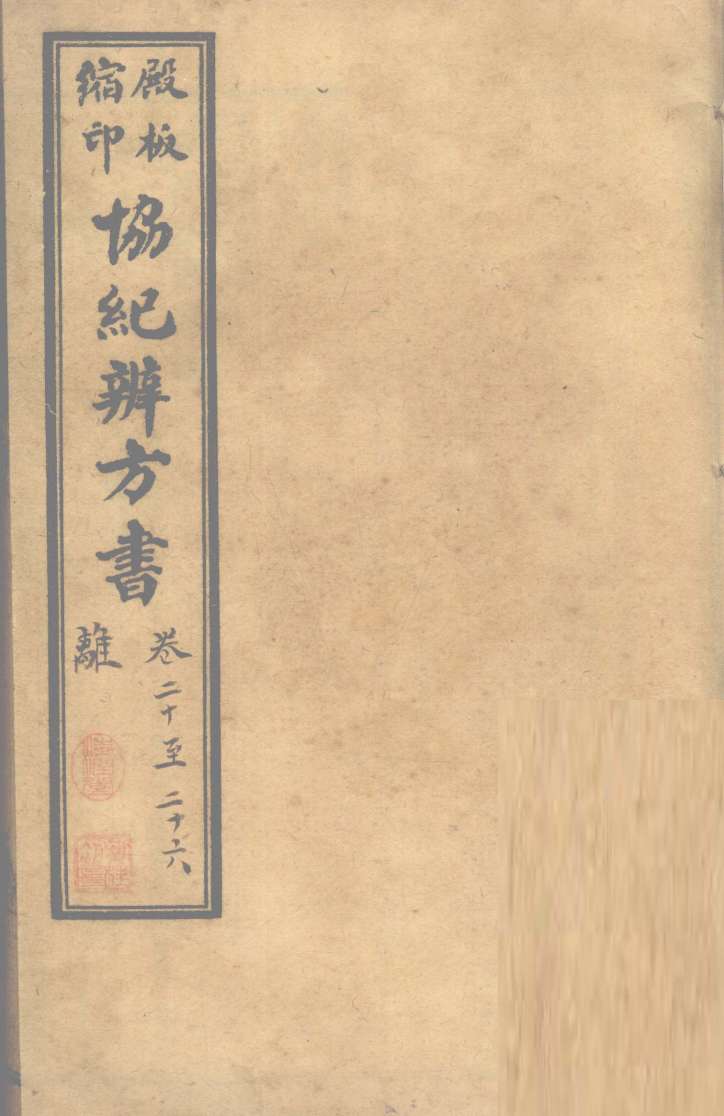 殿板
縮印
協紀辨方書
卷二十至二十六
離